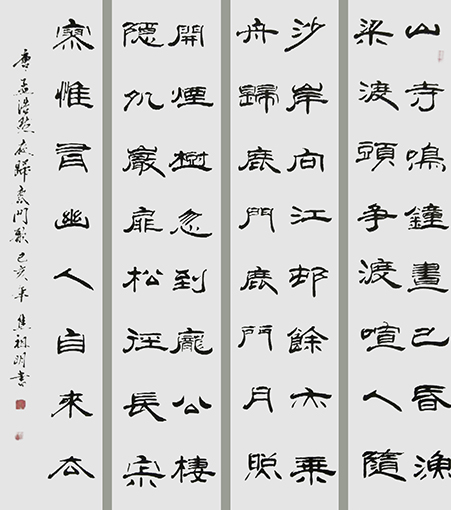 山寺鳴鐘晝已昏漁
梁渡頭爭渡喧人隨
沙岸向江邨餘亦乘
舟歸鹿門鹿門月照
開煙樹忽到龐公棲
隱処巖扉松徑長寂
寥惟有幽人自來去
唐孟浩然夜歸鹿門歌己亥年焦祖明書